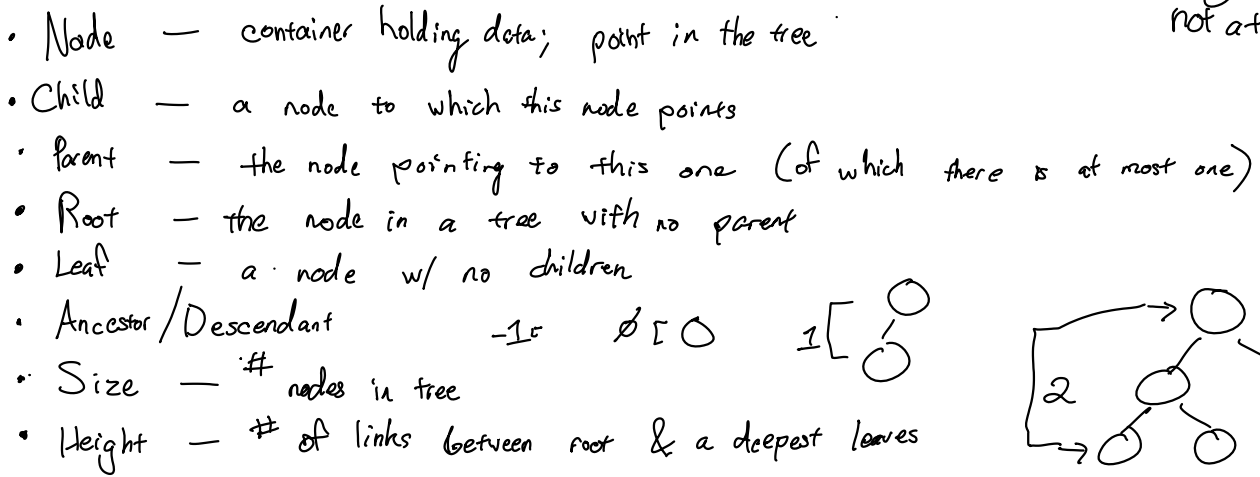 not at
• Node — container holding data; point in the tree
• Child — a node to which this node points
• Parent — the node pointing to this one (of which there is at most one)
• Root — the node in a tree with no parent
• Leaf — a node w/ no children
• Ancestor/Descendant -1[ ∅[ 1[
• Size — # nodes in tree
2
• Height — # of links between root & a deepest leaves